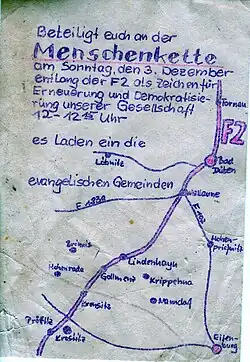 Beteiligt euch an der
Menschenkette
am Sonntag, den 3. Dezember
entlang der F2 als Zeichen für
Erneuerung und Demokratisie-
rung unserer Gesellschaft
12 – 12 Uhr
Tornau
F2
es laden ein die
Löbnitz
Bad
Düben
evangelischen Gemeinden
Wellaune
Hohen-
prießnitz
Brinnis
Lindenhayn
Hohenroda
Gollmenz
Krippehna
Krensitz
Naundorf
Krostitz
Eilen-
burg